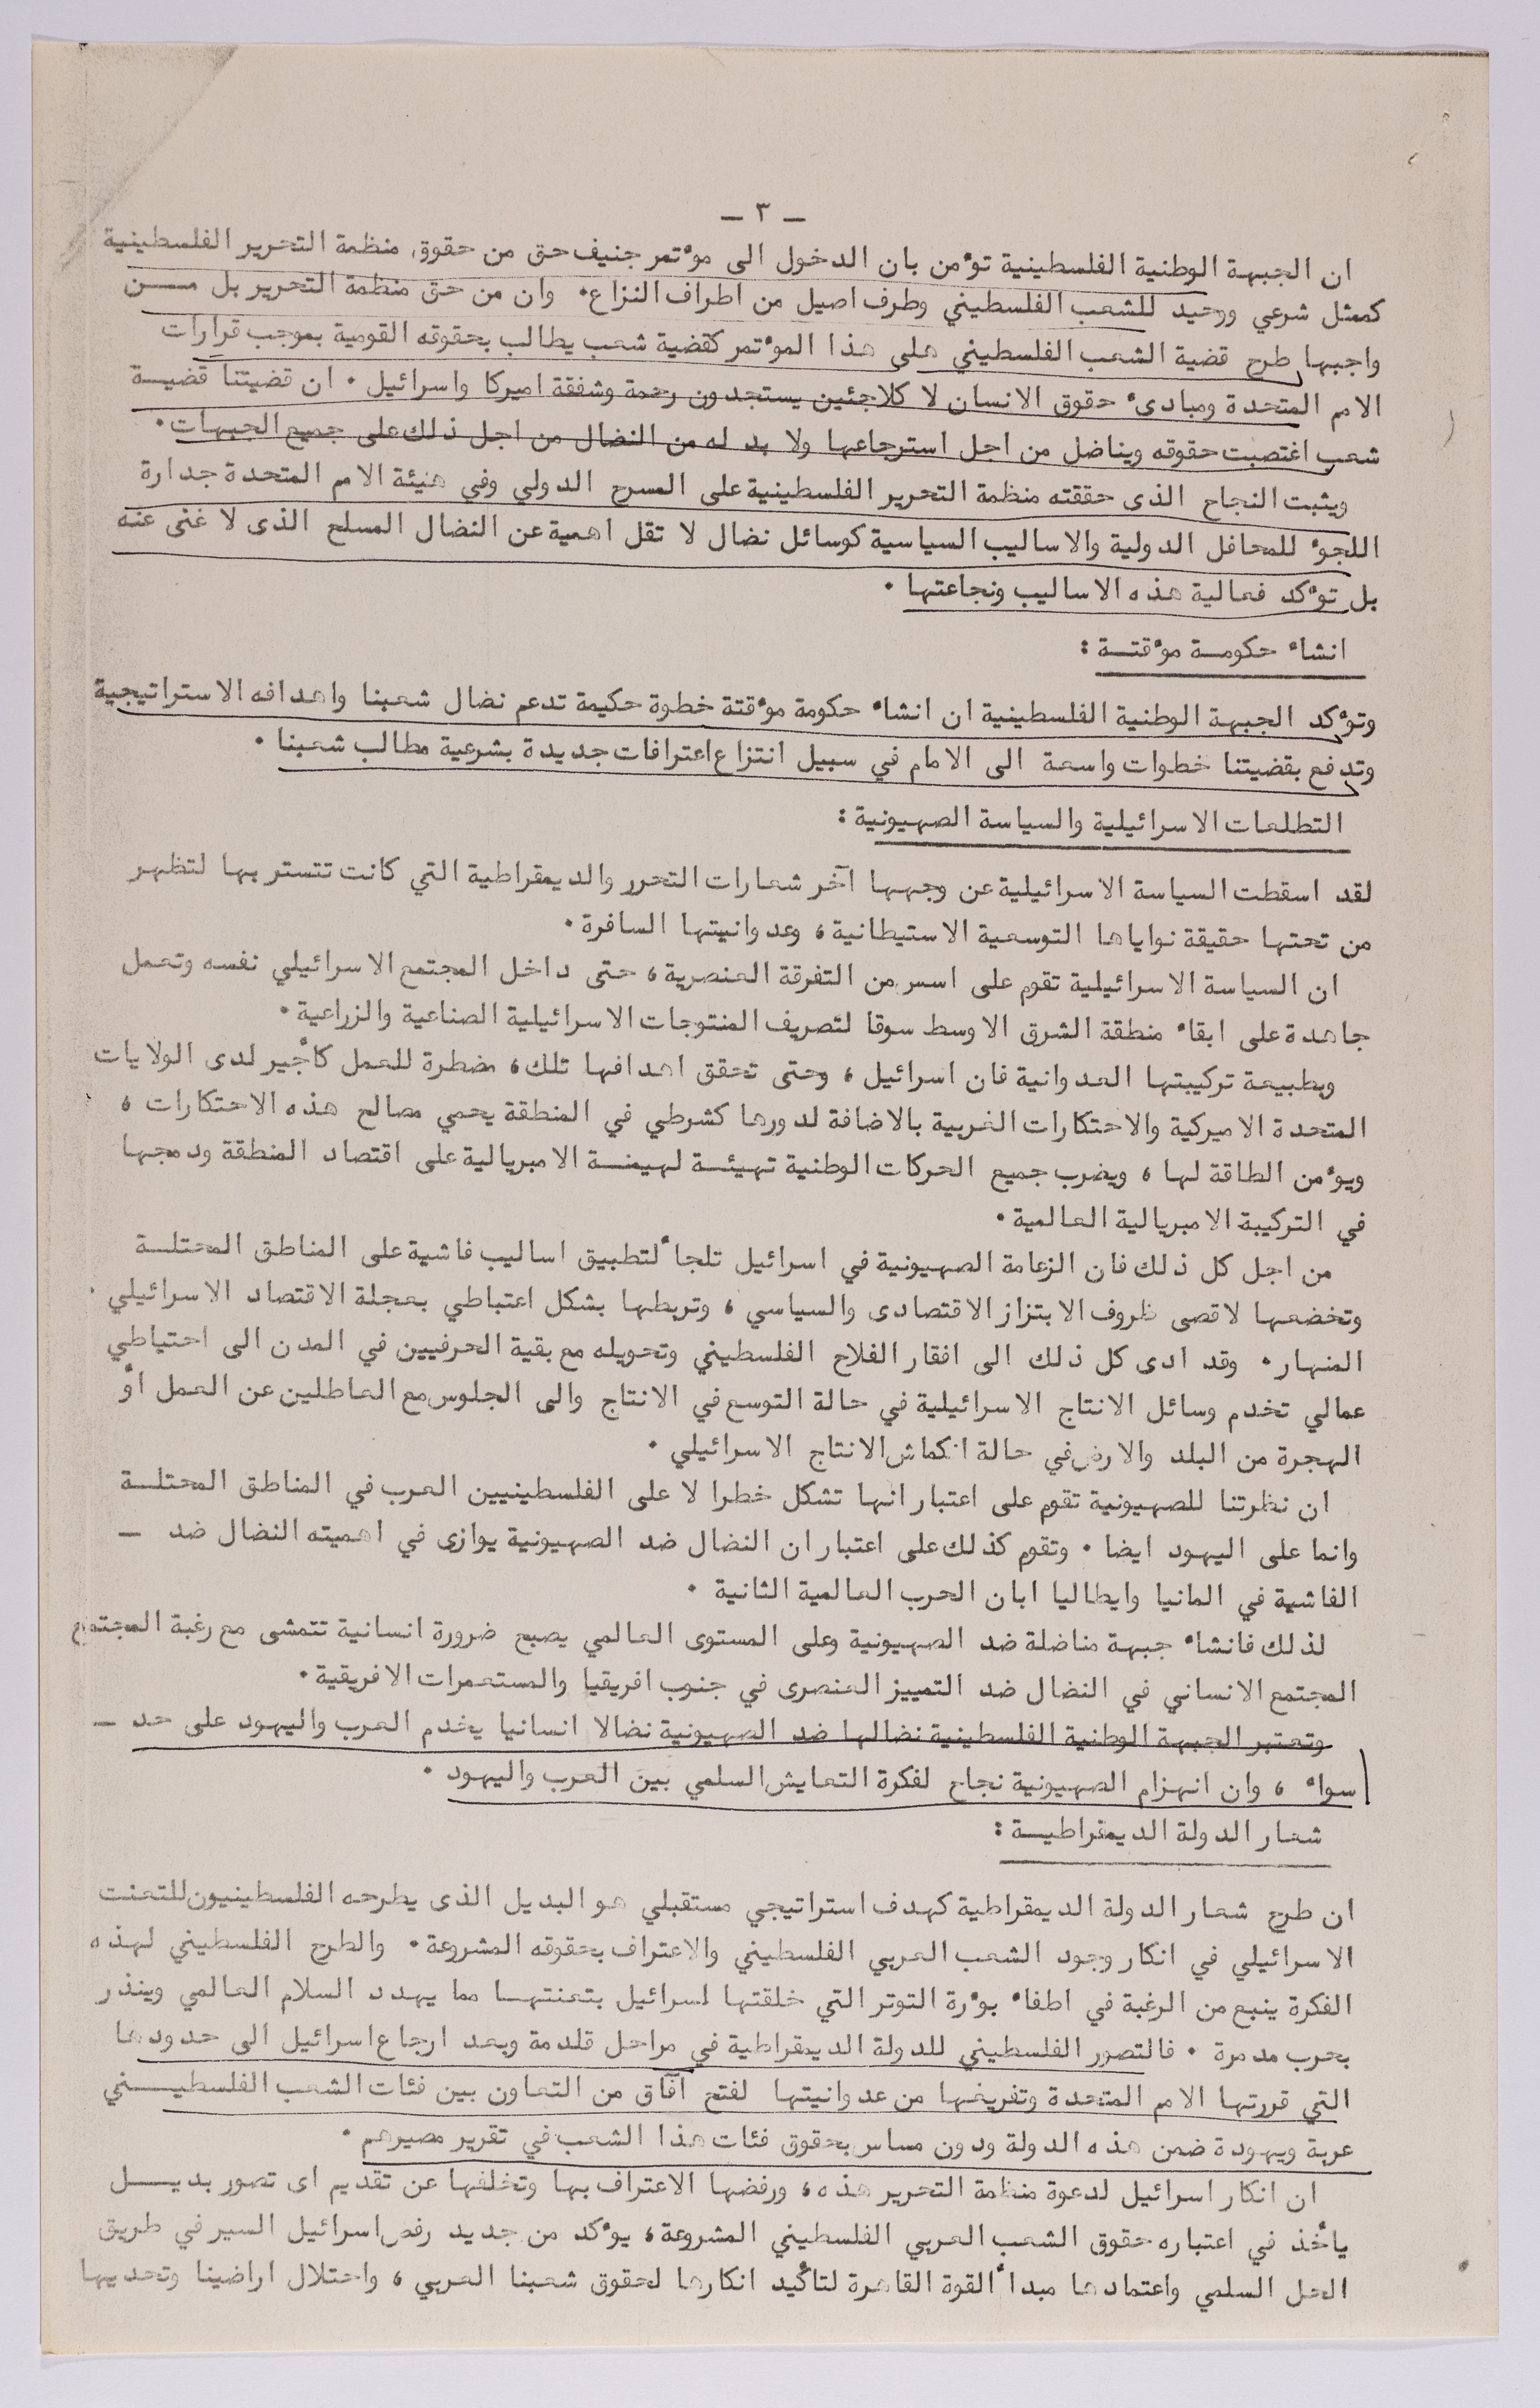 ـ ٣ ـ
ان الجبهة الوطنية الفلسطينية تؤمن بان الدخول الى مؤتمر جنيف حق من حقوق منظمة التحرير الفلسطينية
كممثل شرعي ووحيد للشعب الفلسطيني وطرف اصيل من اطراف النزاع. وان من حق منظمة التحرير بل مـــن
واجبها طرح قضية الشعب الفلسطيني على هذا المؤتمر كقضية شعب يطالب بحقوقه القومية بموجب قرارات
الامم المتحدة ومبادىء حقوق الانسان لا كلاجئين يستجدون رحمة وشفقة اميركا واسرائيل . ان قضيتنا قضيـة
شعب اغتصبت حقوقه ويناضل من اجل استرجاعها ولا بد له من النضال من اجل ذلك على جميع الجبهات .
ويثبت النجاح الذى حققته منظمة التحرير الفلسطينية على المسرح الدولي وفي هيئة الامم المتحدة جدارة
اللجوء للمحافل الدولية والاساليب السياسية كوسائل نضال لا تقل اهمية عن النضال المسلح الذى لا غنى عنه
بل تؤكد فعالية هذه الاساليب ونجاعتها .
انشاء حكومـة مؤقتـة :
وتؤكد الجبهة الوطنية الفلسطينية ان انشاء حكومة مؤقتة خطوة حكيمة تدعم نضال شعبنا واهدافه الاستراتيجية
وتدفع بقضيتنا خطوات واسعة الى الامام في سبيل انتزاع اعترافات جديدة بشرعية مطالب شعبنا .
التطلعات الاسرائيلية والسياسة الصهيونية :
لقد اسقطت السياسة الاسرائيلية عن وجهها آخر شعارات التحرر والديمقراطية التي كانت تتستر بها لتظهر
من تحتها حقيقة نواياها التوسعية الاستيطانية ، وعدوانيتها السافرة .
ان السياسة الاسرائيلية تقوم على اسس من التفرقة العنصرية ، حتى داخل المجتمع الاسرائيلي نفسه وتعمل
جاهدة على ابقاء منطقة الشرق الاوسط سوقا لتصريف المنتوجات الاسرائيلية الصناعية والزراعية .
وبطبيعة تركيبتها العدوانية فان اسرائيل ، وحتى تحقق اهدافها تلك ، مضطرة للعمل كأجير لدى الولايات
المتحدة الاميركية والاحتكارات الغربية بالاضافة لدورها كشرطي في المنطقة يحمي مصالح هذه الاحتكارات ،
ويؤمن الطاقة لها ، ويضرب جميع الحركات الوطنية تهيئـة لهيمنـة الامبريالية على اقتصاد المنطقة ودمجها
في التركيبة الامبريالية العالمية .
من اجل كل ذلك فان الزعامة الصهيونية في اسرائيل تلجأ لتطبيق اساليب فاشية على المناطق المحتلـة
وتخضعها لاقصى ظروف الابتزاز الاقتصادى والسياسي ، وتربطها بشكل اعتباطي بعجلة الاقتصاد الاسرائيلي
المنهار . وقد ادى كل ذلك الى افقار الفلاح الفلسطيني وتحويله مع بقية الحرفيين في المدن الى احتياطي
عمالي تخدم وسائل الانتاج الاسرائيلية في حالة التوسع في الانتاج والى الجلوس مع العاطلين عن العمل أو
الهجرة من البلد والارض في حالة انكماش الانتاج الاسرائيلي .
ان نظرتنا للصهيونية تقوم على اعتبار انها تشكل خطرا لا على الفلسطينيين العرب في المناطق المحتلـة
وانما على اليهود ايضا . وتقوم كذلك على اعتبار ان النضال ضد الصهيونية يوازى في اهميته النضال ضد ـ
الفاشية في المانيا وايطاليا ابان الحرب العالمية الثانية .
لذلك فانشاء جبهة مناضلة ضد الصهيونية وعلى المستوى العالمي يصبح ضرورة انسانية تتمشى مع رغبة المجتمع
المجتمع الانساني في النضال ضد التمييز العنصرى في جنوب افريقيا والمستعمرات الافريقية .
وتعتبر الجبهة الوطنية الفلسطينية نضالها ضد الصهيونية نضالا انسانيا يخدم العرب واليهود على حد ـ
سواء ، وان انهزام الصهيونية نجاح لفكرة التعايش السلمي بين العرب واليهود .
شعار الدولة الديمقراطيـة :
ان طرح شعار الدولة الديمقراطية كهدف استراتيجي مستقبلي هو البديل الذى يطرحه الفلسطينيون للتعنت
الاسرائيلي في انكار وجود الشعب العربي الفلسطيني والاعتراف بحقوقه المشروعة . والطرح الفلسطيني لهذه
الفكرة ينبع من الرغبة في اطفاء بؤرة التوتر التي خلقتها اسرائيل بتعنتهـا مما يهدد السلام العالمي وينذر
بحرب مدمرة . فالتصور الفلسطيني للدولة الديمقراطية في مراحل قادمة وبعد ارجاع اسرائيل الى حدودها
التي قررتها الامم المتحدة وتفريغها من عدوانيتها لفتح آفاق من التعاون بين فئات الشعب الفلسطيـــني
عربة ويهودة ضمن هذه الدولة ودون مساس بحقوق فئات هذا الشعب في تقرير مصيرهم .
ان انكار اسرائيل لدعوة منظمة التحرير هذه ، ورفضها الاعتراف بها وتخلفها عن تقديم اى تصور بديـــل
يأخذ في اعتباره حقوق الشعب العربي الفلسطيني المشروعة ، يؤكد من جديد رفض اسرائيل السير في طريق
الحل السلمي واعتمادها مبدأ القوة القاهرة لتأكيد انكارها لحقوق شعبنا العربي ، واحتلال اراضينا وتحديها